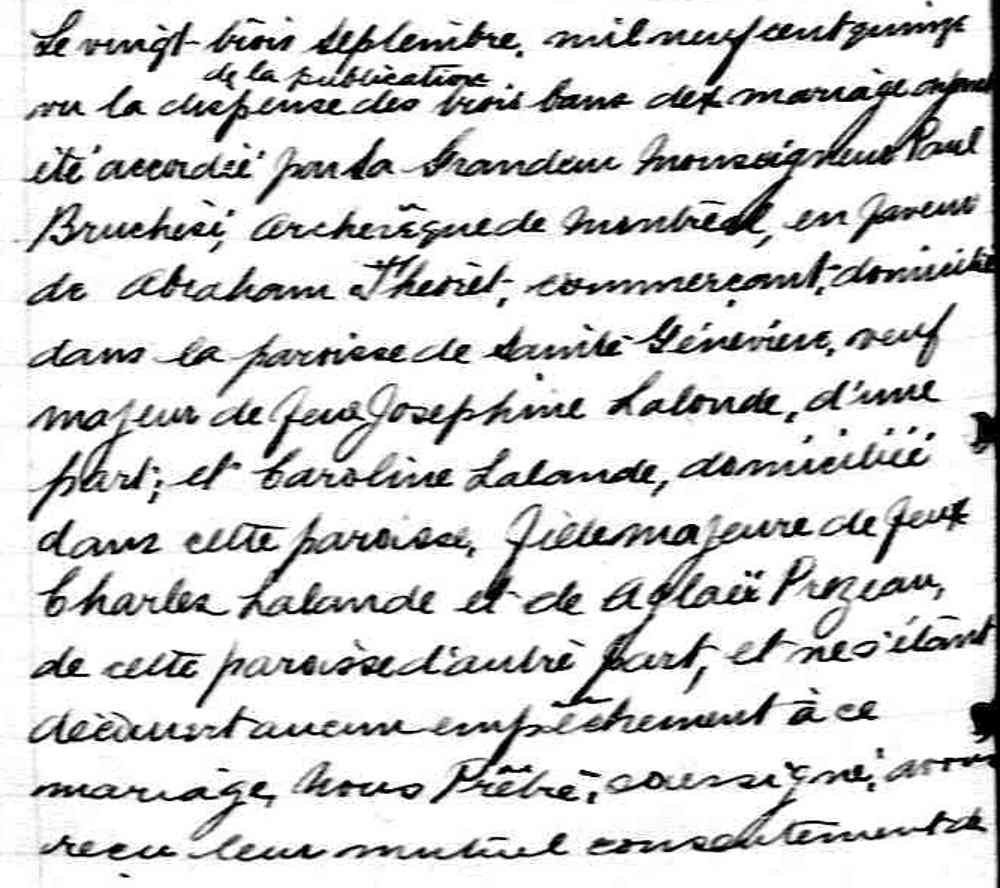 Le vingt trois septembre, mil neuf cent quinze
de la publication
vu la dispense des trois bans de mariage ayant
été accordée par Sa Grandeur Monseigneur Paul
Bruchési, archevêque de Montréal, en faveur
de Abraham Théorêt, commerçant, domicilié
dans la paroisse de Sainte Généviève, veuf
majeur de feue Josephine Lalonde, d'une
part; et Caroline Lalande, domiciliée
dans cette paroisse, fille majeure de feu
Charles Lalande et de Aglaë Prezeau,
de cette paroisse d'autre part, et ne s'étant
découvert aucun empêchement à ce
mariage, Nous Prêtre, soussigné, avons
reçu leur mutuel consentement de